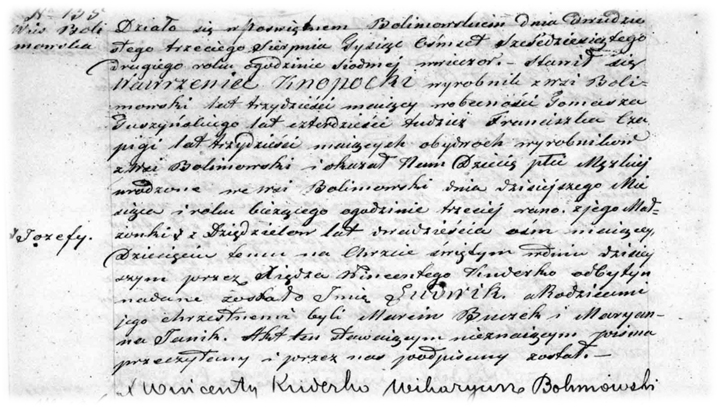 N° 135
Wieś Boli
mowska
Działo się w poświętnem Bolimowskiem dnia dwudzie
stego trzeciego Sierpnia Tysiąc Ośmset Sześćdziesiątego
drugiego roku o godzinie siodmej wieczor. - Stawił się
Wawrzeniec Knopocki wyrobnik z wsi Boli-
mowski lat trzydzieści maiący w obecności Tomasza
Guszyńskiego lat czterdzieści tudzież Franciszka Cza
pigi lat trzydzieści maiących obydwoch wyrobników
z Wsi Bolimowski i okazał Nam Dziecię płci Męzkiej
urodzone we wsi Bolimowski dnia dzisiejszego Mie
siąca i roku bieżącego o godzinie trzeciej rano. z jego Mał-
żonki z Dzięдzielow lat dwadzieścia osm maiącey,
Józefy.
Dziecięciu temu na Chrzcie świętym w dniu dzisiey
szym przez Xiędza Wincentego Kuderko odbytym
nadane zostało Imię Ludwik. a Rodzicami
jego chrzestnemi byli Marcin Buczek i Maryan-
na Janik. Akt ten stawaiącym nieznaiącym pisma
przeczytany i przez nas podpisany został. -
X Wincenty Kuderko Wikaryusz Bolimowski